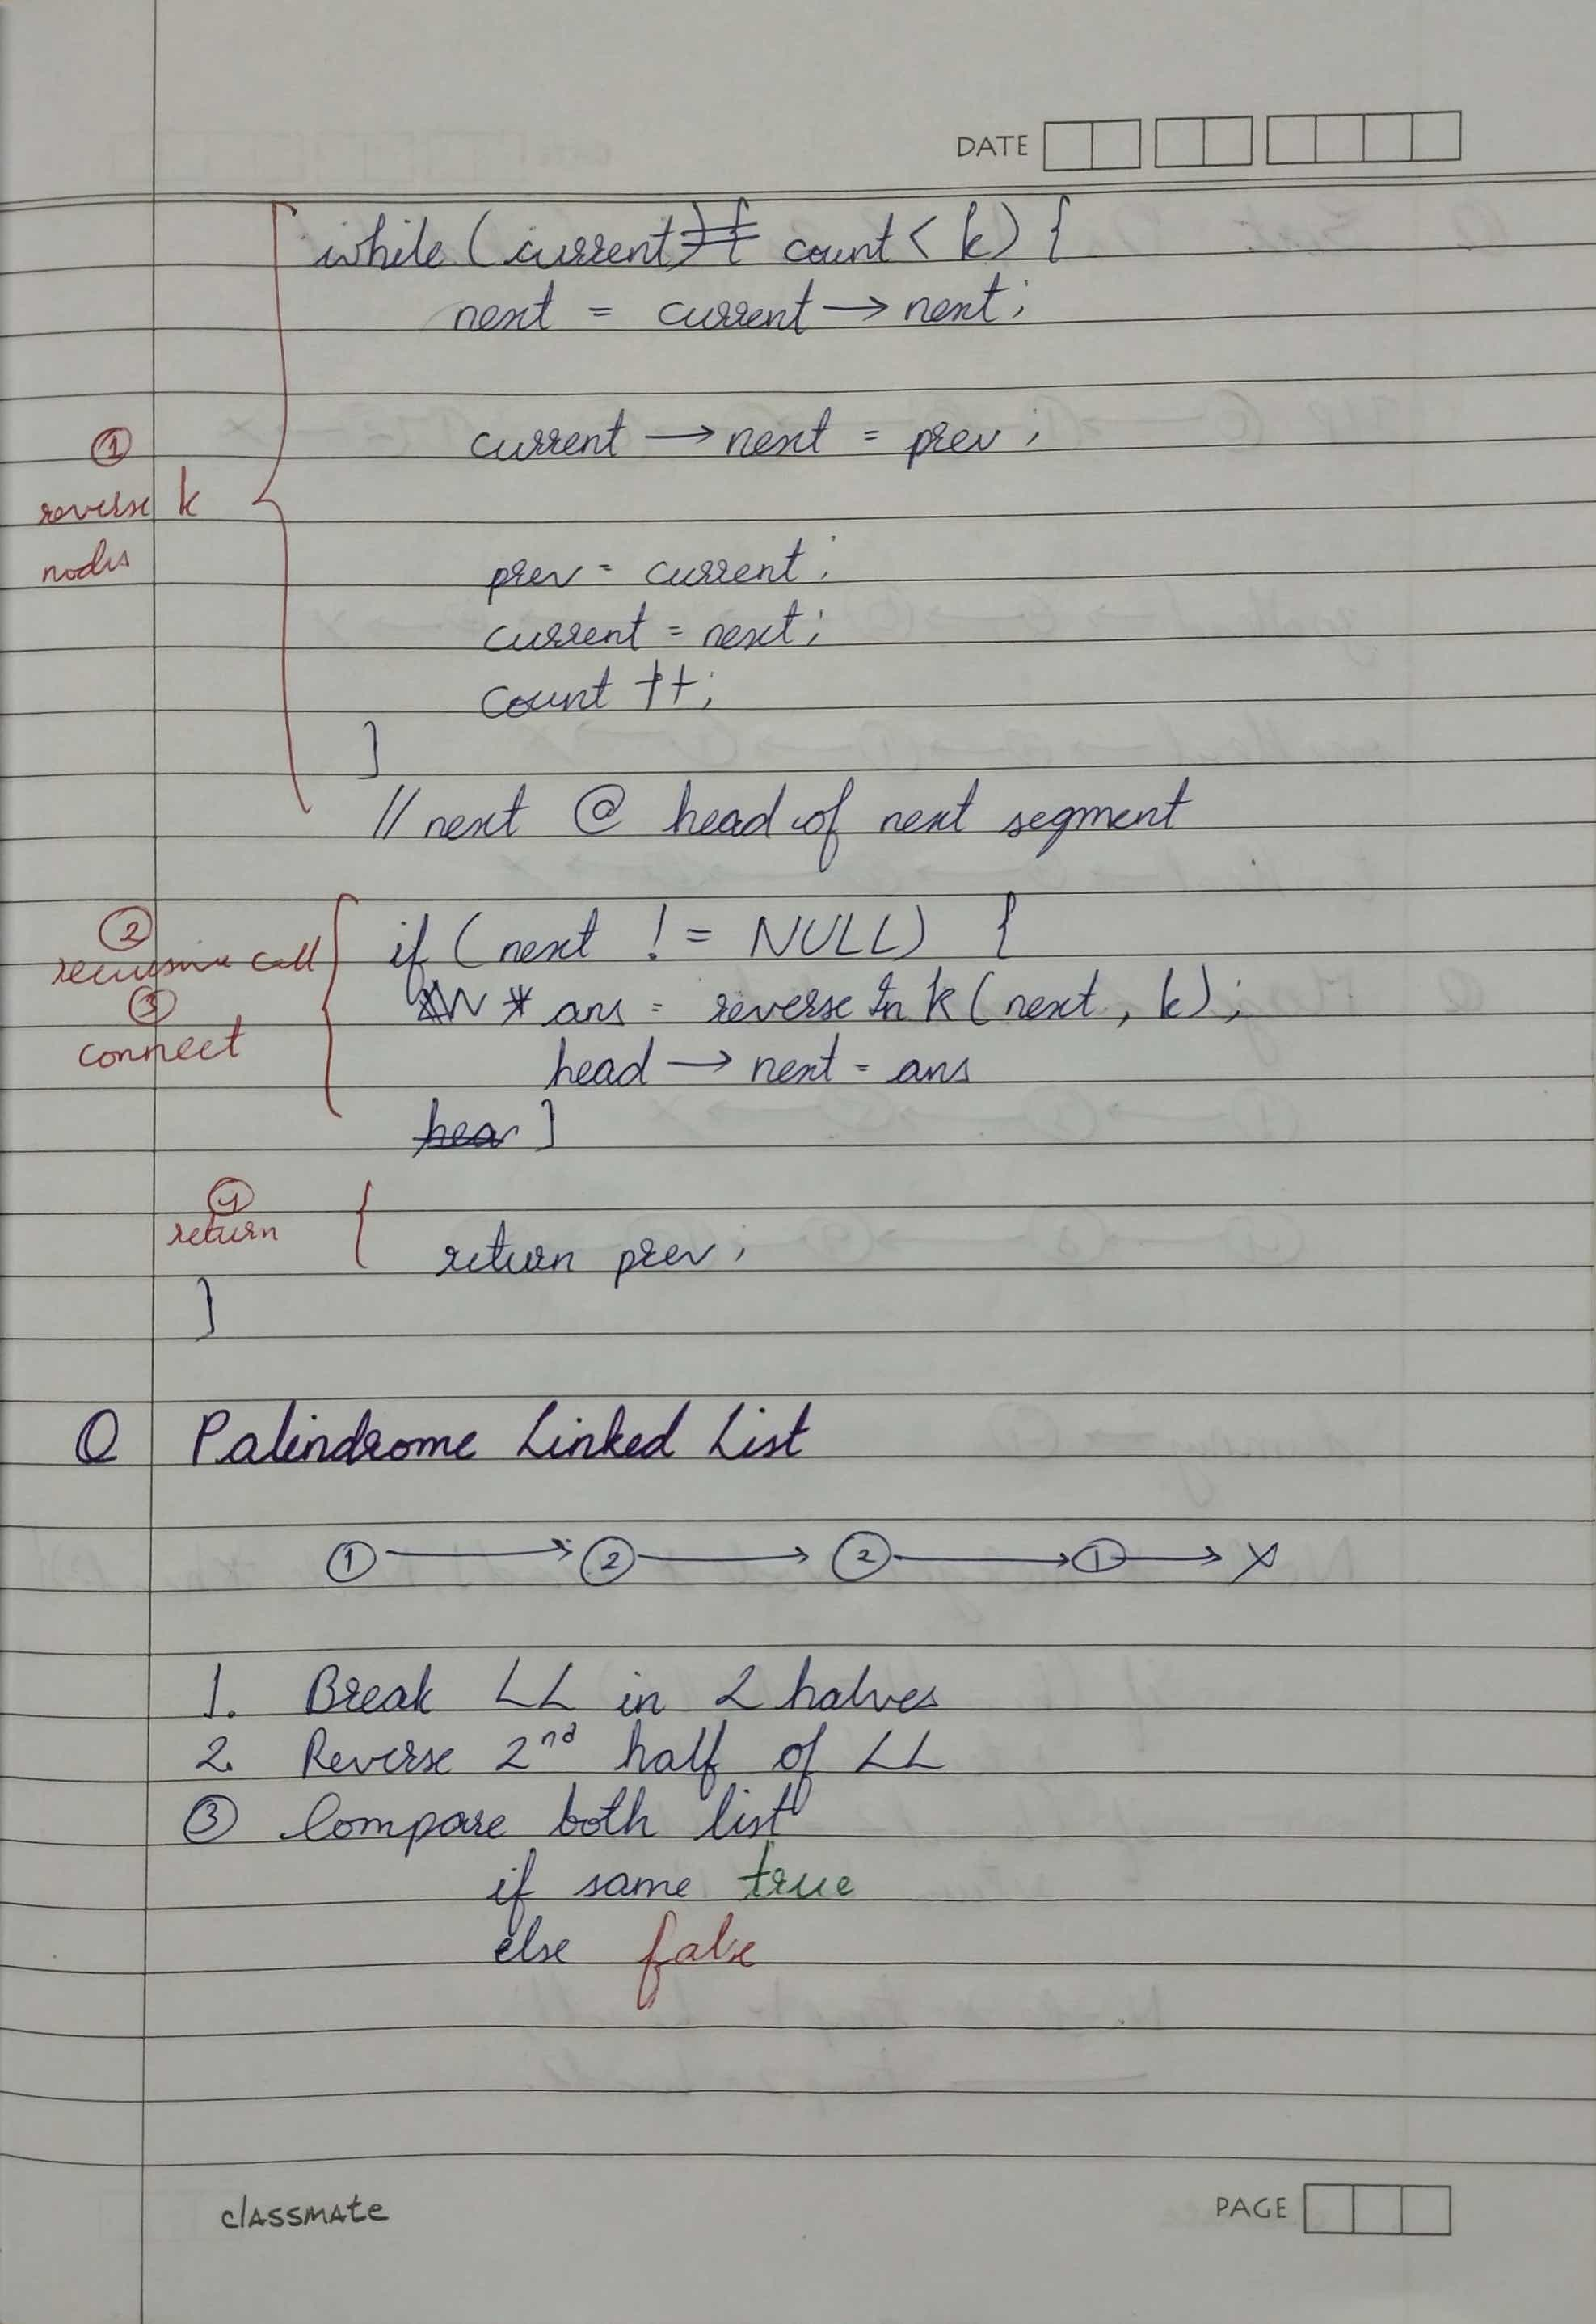 DATE
while (current) && count < k) {
next = current → next;
current → next = prev;
① reverse k nodes
prev = current;
current = next;
count ++;
}
// next @ head of next segment
② recursive call
③ connect
if (next != NULL) {
* ans = reverse In k (next, k);
head → next = ans
}
④ return
return prev;
}
Q Palindrome Linked List
① → ② → ② → ① → X
1. Break LL in 2 halves
2. Reverse 2nd half of LL
③ Compare both list
if same true
else false
classmate
PAGE